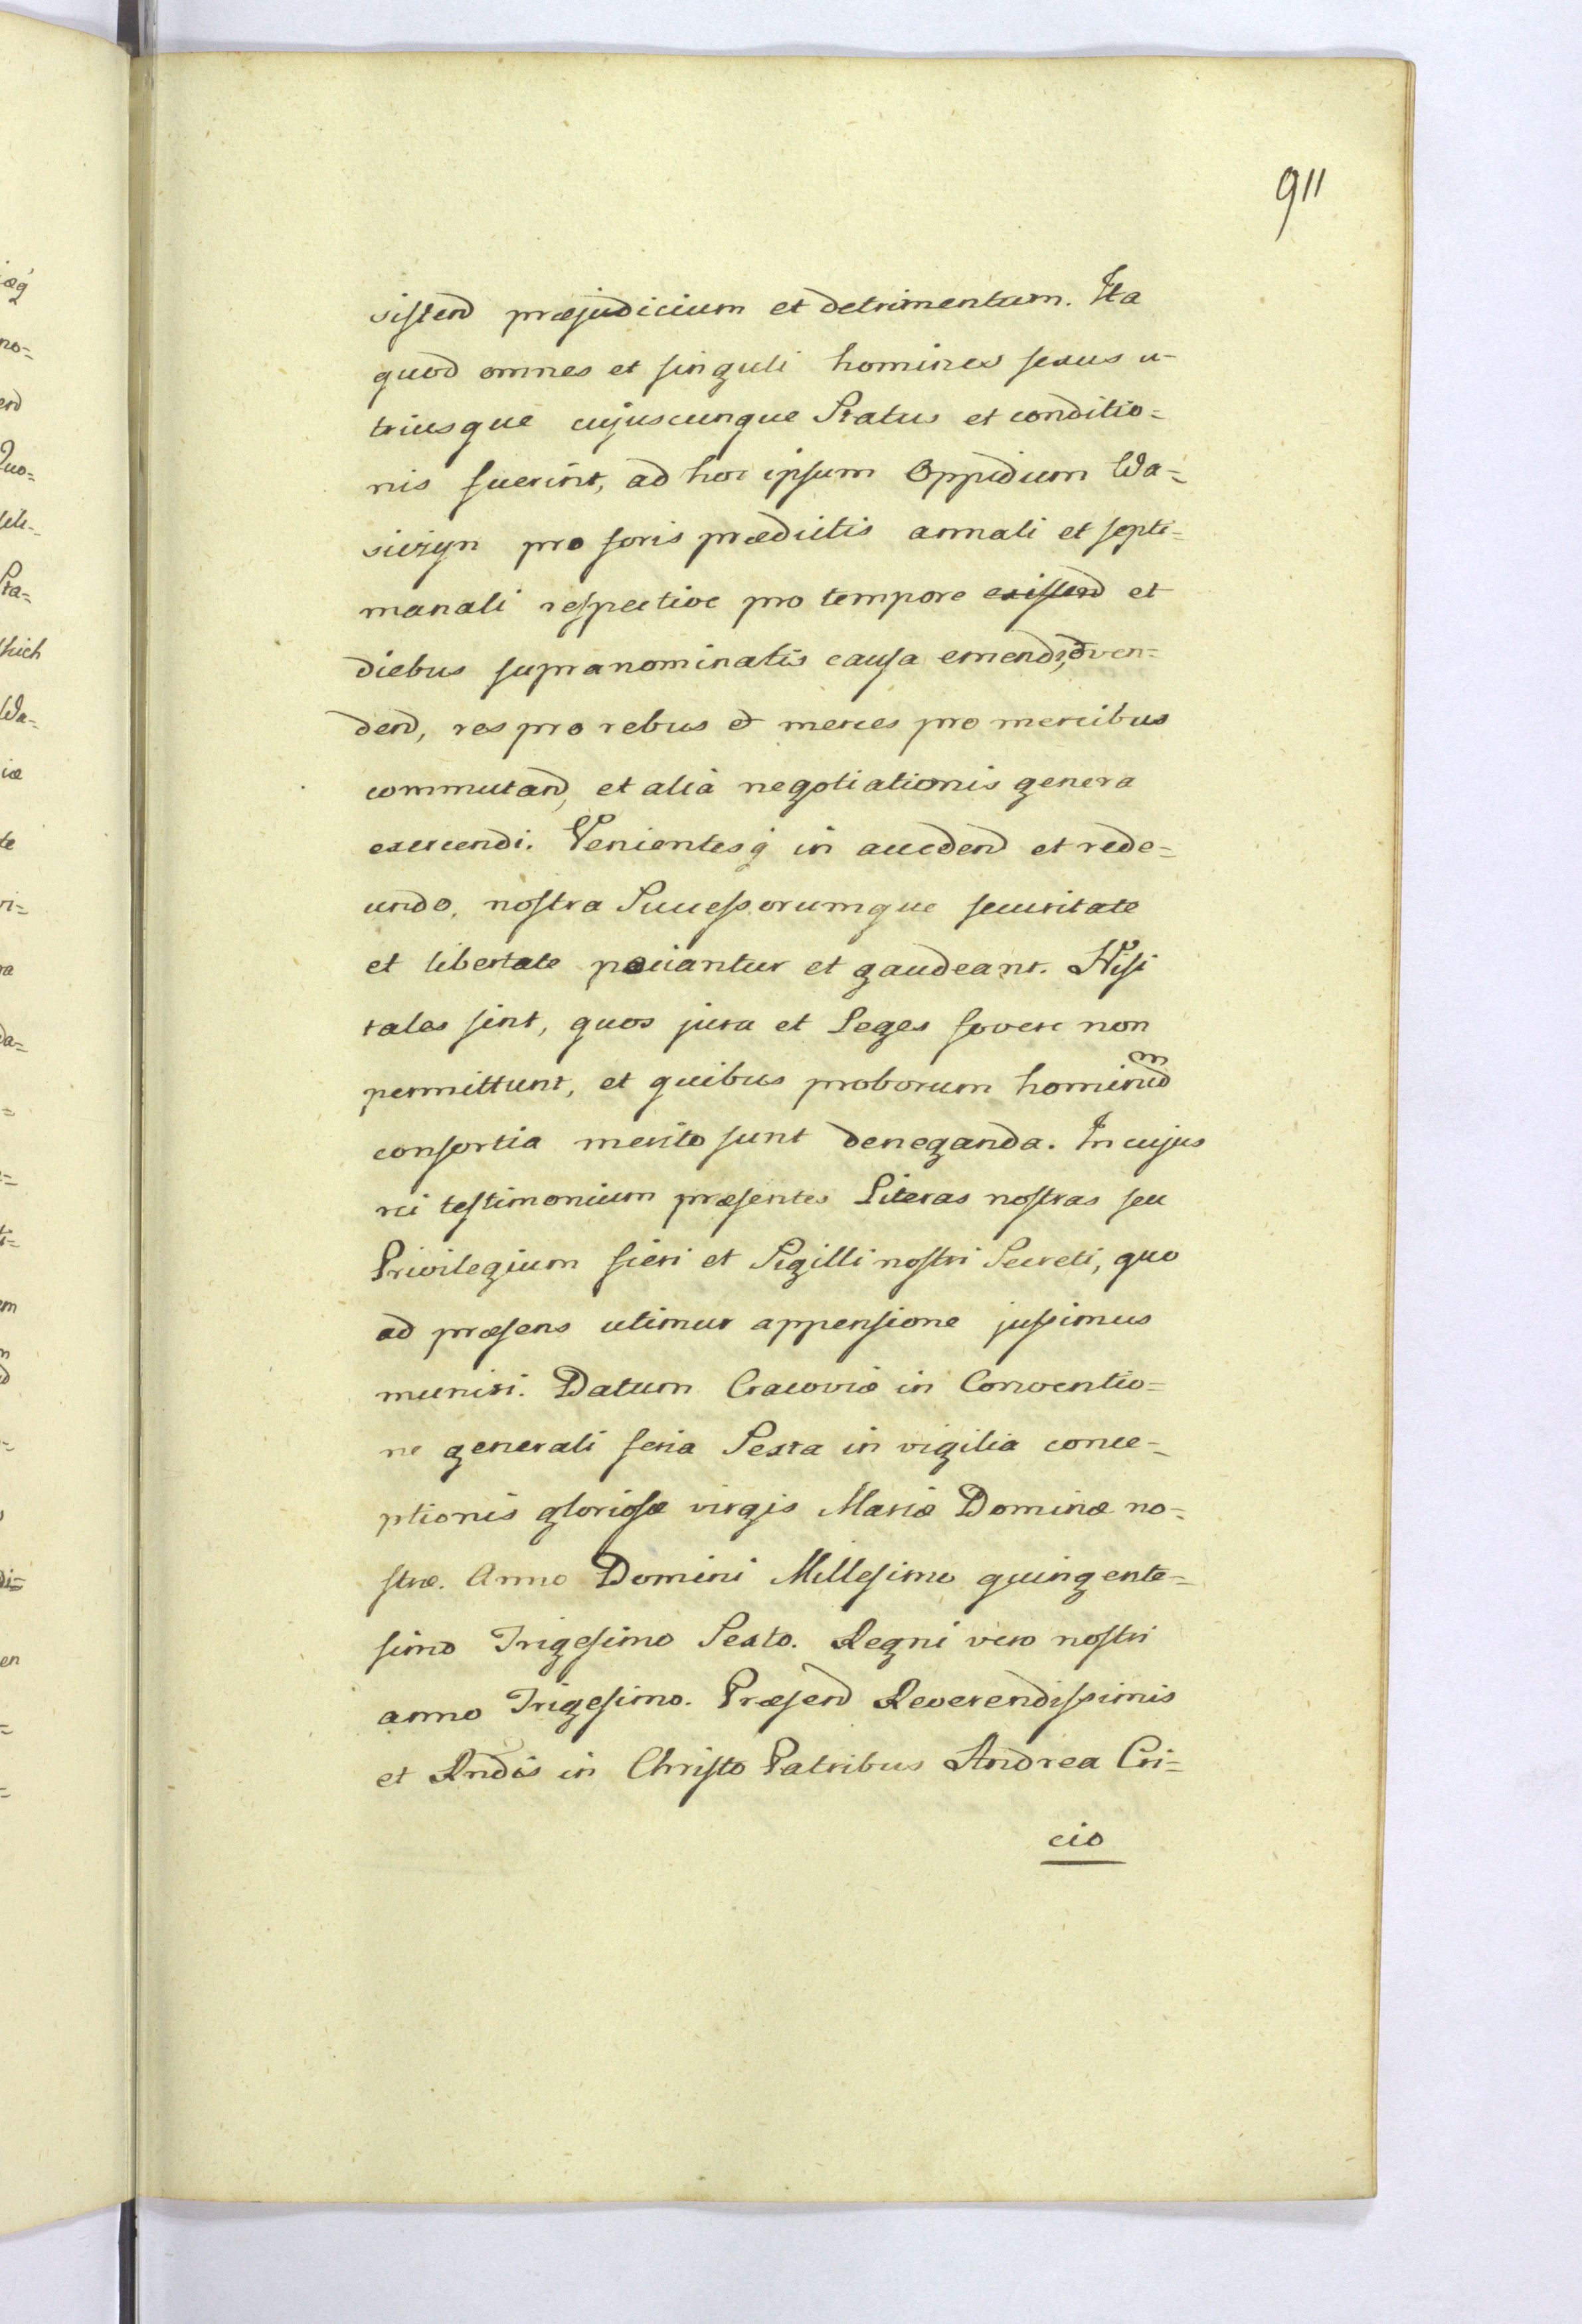 911
sistend præjudicium et detrimentum. Ita
quod omnes et singuli homines sexus u-
triusque cujuscunque Status et conditio=
nis fuerint, ad hoc ipsum Oppidum Wa=
siczyn pro foris prædictis annali et septi=
manali respective pro tempore existend et
diebus supranominatis causa emendi, ven=
dend, res pro rebus & merces pro mercibus
commutand, et alia negotiationis genera
exercendi. Venientesq in accedend et rede=
undo, nostra Successorumque securitate
et libertate pociantur et gaudeant. Nisi
tales sint, quos jura et Leges fovere non
permittunt, et quibus proborum hominum
consortia merito sunt deneganda. In cujus
rei testimonium præsentes Literas nostras seu
Privilegium fieri et Sigilli nostri Secreti, quo
ad præsens utimur appensione jussimus
muniri. Datum Cracoviæ in Conventio=
ne generali feria Sexta in vigilia conce=
ptionis gloriosæ virgis Mariæ Dominæ no=
stræ. Anno Domini Millesimo quingente=
simo Trigesimo Sexto. Regni vero nostri
anno Trigesimo. Præsend Reverendissimis
et Rndis in Christo Patribus Andrea Cri=
cio